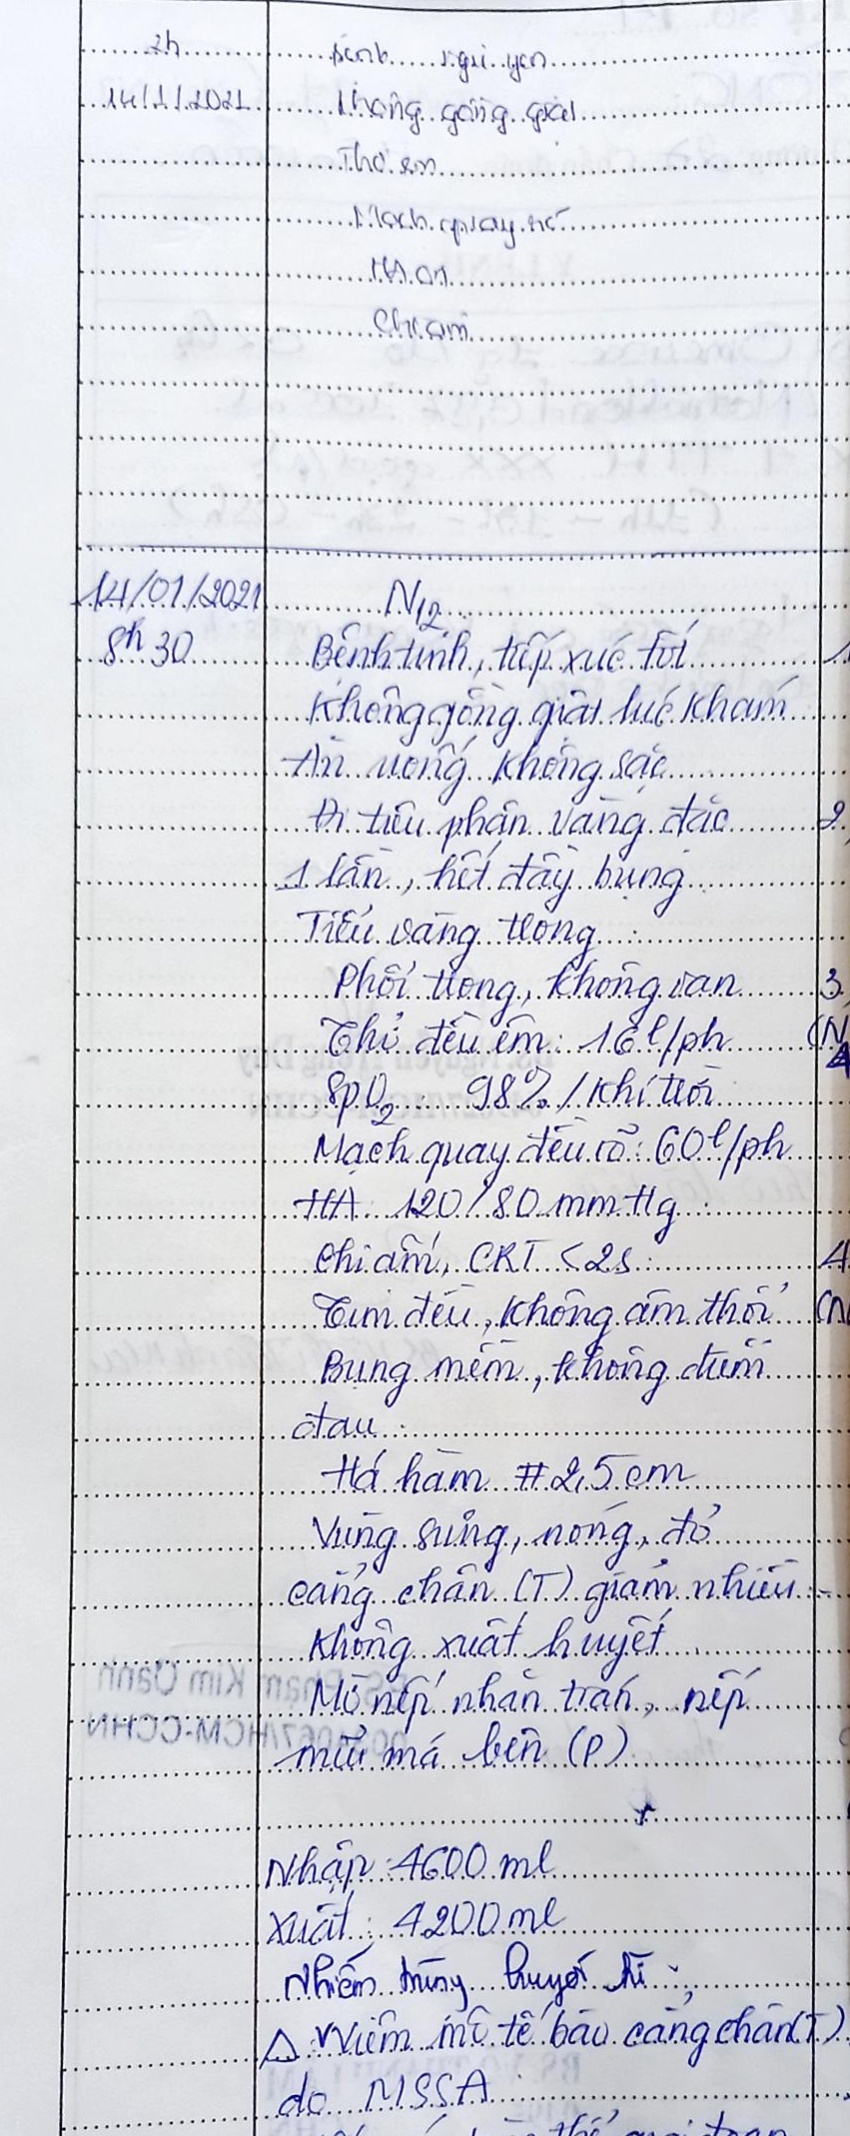 2h
Bệnh ngủ yên
14/1/2021
Không gồng giật
Thở êm
Mạch quay rõ
HA ổn
Chi ấm
14/01/2021
N12
8h30
Bệnh tỉnh, tiếp xúc tốt
Không gồng giật lúc khám
Ăn uống không sặc
Đi tiêu phân vàng đặc
1 lần, hết đầy bụng
Tiểu vàng trong
Phổi trong, không ran
Thở đều êm: 16 l/ph
SpO2: 98% / khí trời
Mạch quay đều rõ: 60 l/ph
HA: 120/80 mmHg
Chi ấm, CRT <2s
Tim đều, không âm thổi
Bụng mềm, không điểm
đau
Há hàm # 2,5 cm
Vùng sưng, nóng, đỏ
cẳng chân (T) giảm nhiều
Không xuất huyết
Mờ nếp nhăn trán, nếp
mũi má bên (P)
Nhập: 4600 ml
Xuất: 4200 ml
Nhiễm trùng huyết
Δ Viêm mô tế bào cẳng chân (T)
do MSSA